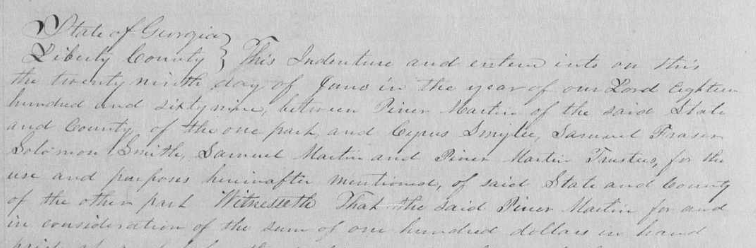 State of Georgia
Liberty County } This Indenture and enterd into on this
the twenty ninth day of June in the year of our Lord Eighteen
hundred and sixty nine, between Piner Martin of the said State
and County, of the one part, and Cyrus Smylie, Samuel Fraser
Solomon Smith, Samuel Martin and Piner Martin Trustees, for the
use and purposes hereinafter mentioned, of said State and County
of the other part Witnesseth That the said Piner Martin for and
in consideration of the sum of one hundred dollars in hand